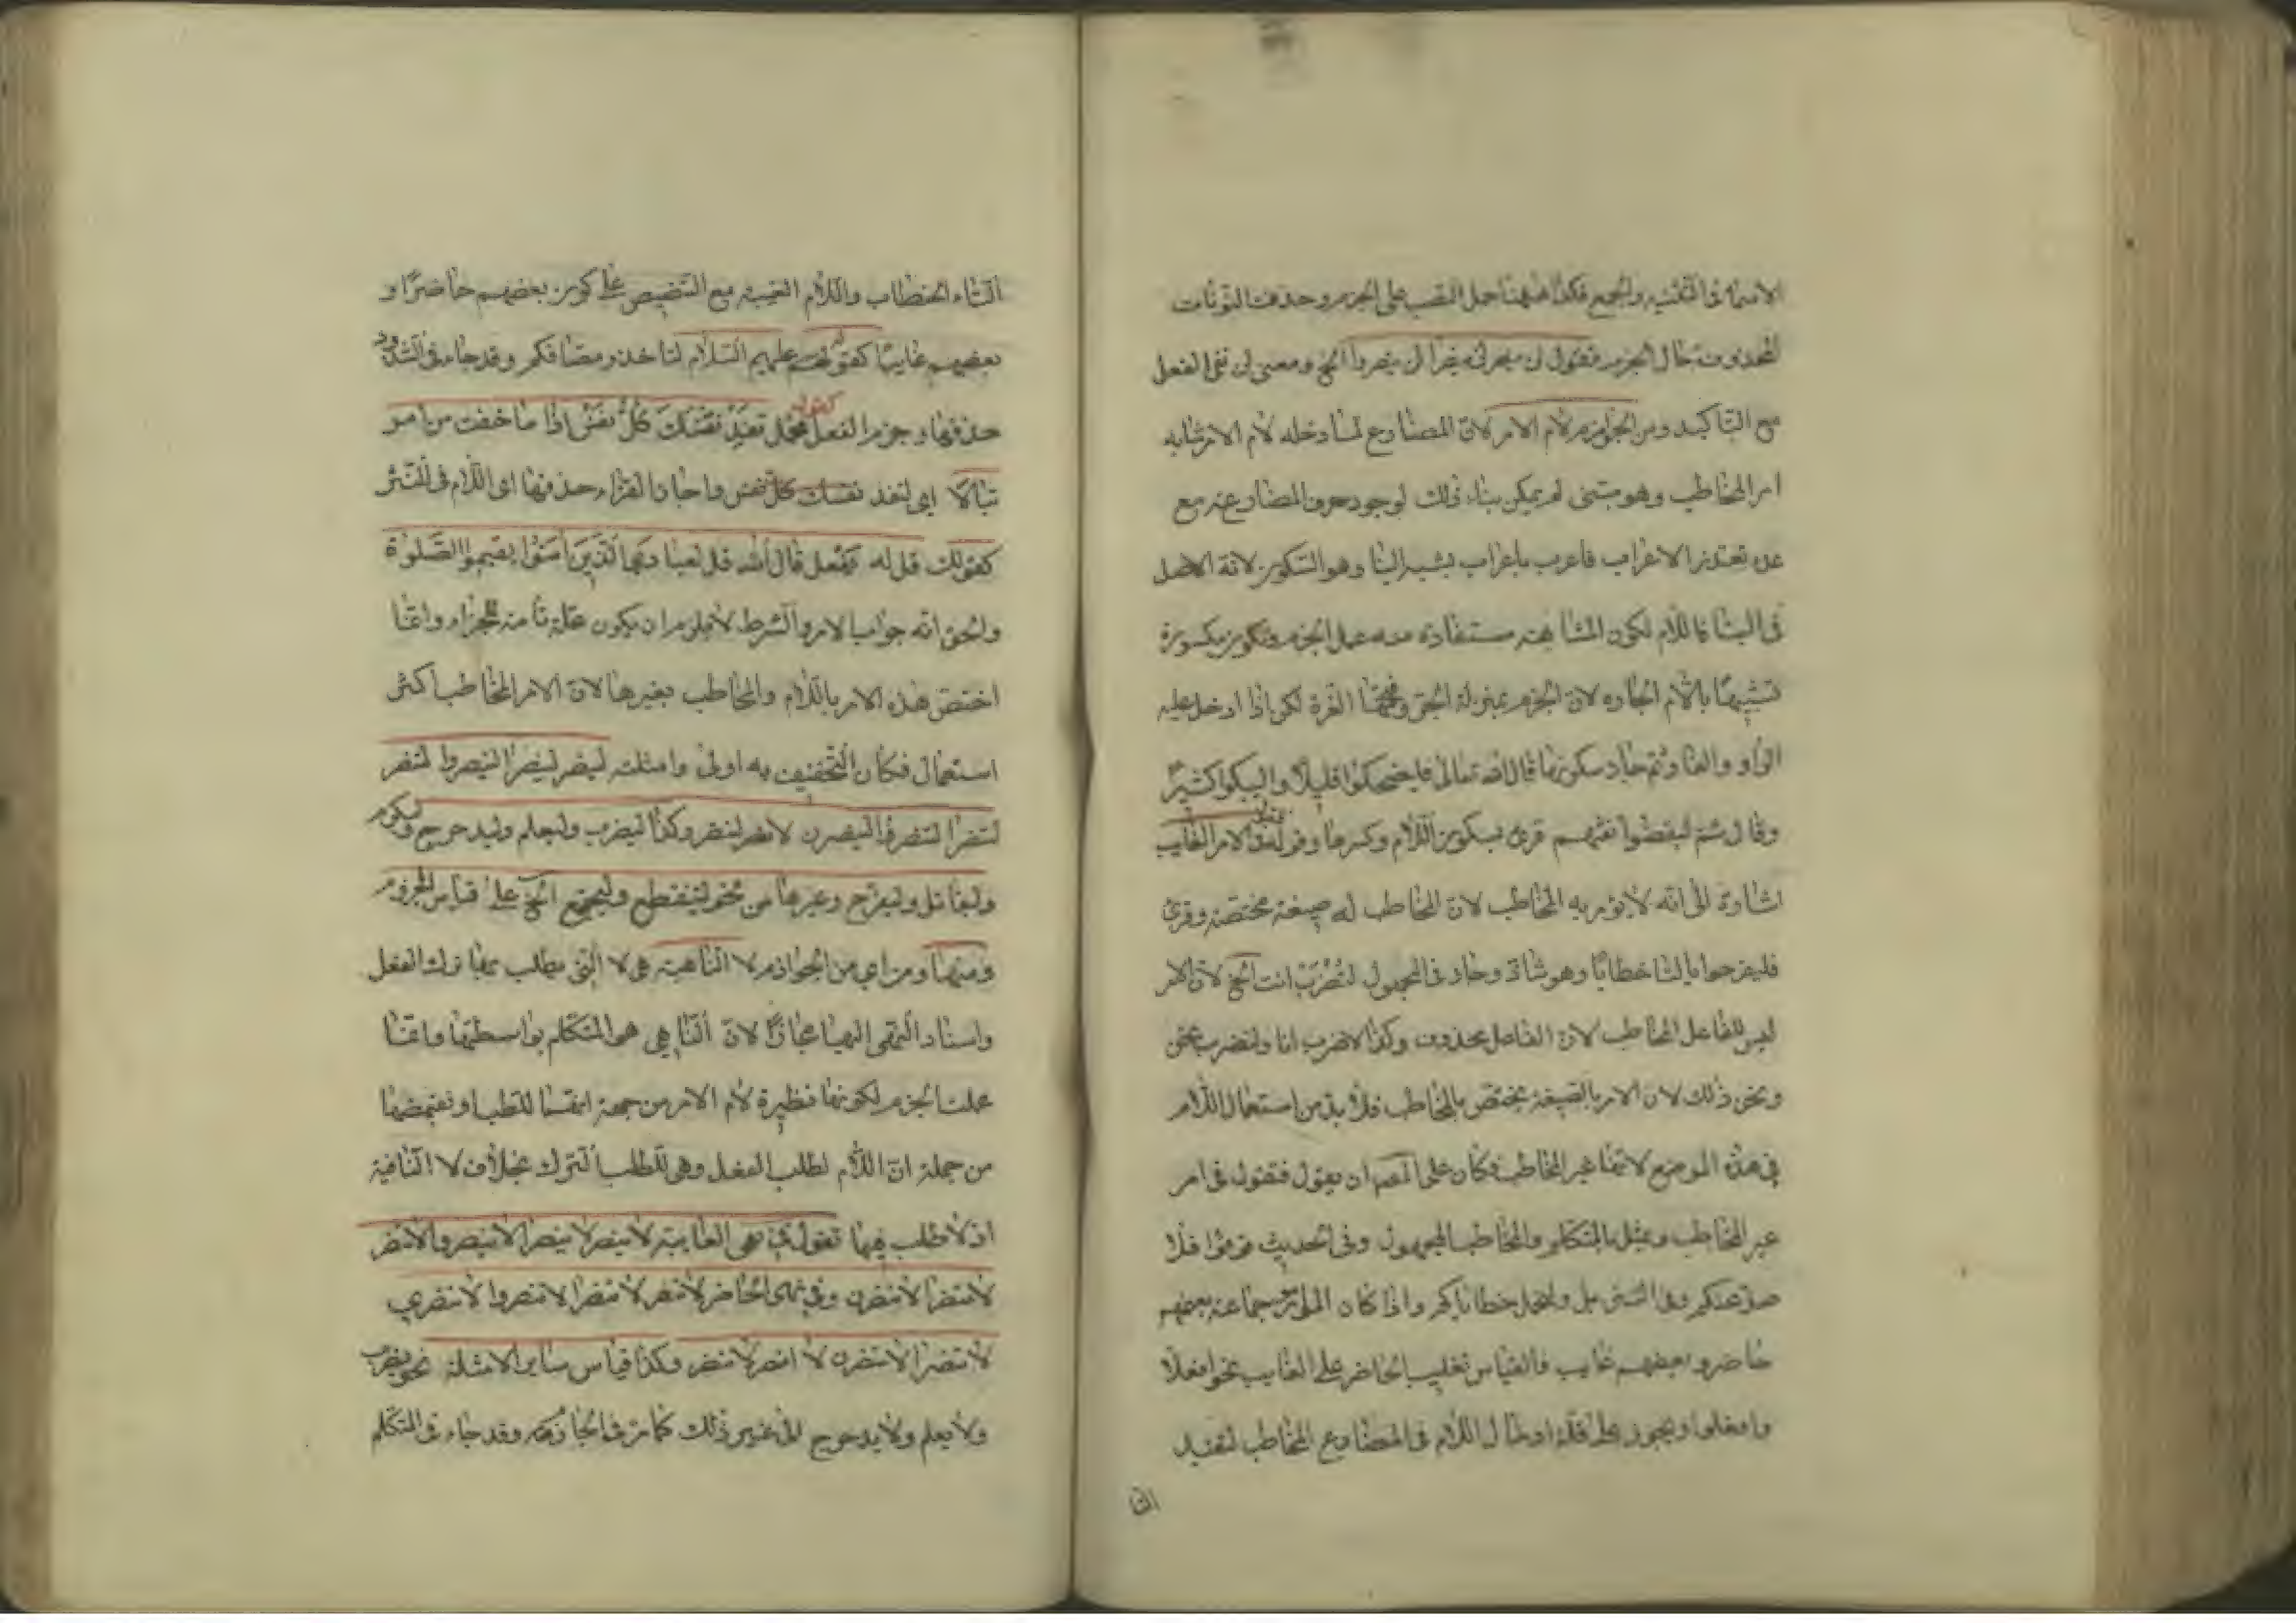 الاسماء فى التثنيه والجمع فكذا ههنا حمل النصب على الجزم وحذفت النونات
المحذوفة حال الجزم فتقول لن ينصر لن ينصرا لن ينصروا الخ ومعنى لن نفى الفعل
مع التاكيد ومن الجوازم لام الامر لان المضارع لما دخله لام الامر شابه
امر المخاطب وهو مبنى لم يمكن بناء ذلك لوجود حرف المضارعة مع
عدم تعذر الاعراب فاعرب باعراب يشبه البنا وهو السكون لانه الاصل
فى البنا فاللام لكون المشابهة مستفادة منه عمل الجزم وتكون مكسورة
تشبيها باللام الجاره لان الجزم بمنزلة الجر وفتحها لغة لكن اذا ادخل عليه
الواو والفا وثم جاز سكونها قال الله تعالى فليضحكوا قليلا وليبكوا كثيرا
وقال ثم ليقضوا تفثهم قرئ بسكون اللام وكسرها وقوله لام الامر الغايب
اشارة الى انه لا يؤمر به المخاطب لان المخاطب له صيغة مختصة وقرئ
فليفرحوا بالتا خطابا وهو شاذ وجاز فى المجهول لتضرب انت الخ لان الامر
ليس للفاعل المخاطب لان الفاعل محذوف وكذا لاضرب انا ولنضرب نحن
ونحو ذلك لان الامر بالصيغة يختص بالمخاطب فلا بد من استعمال اللام
فى هذه المواضع لانها غير المخاطب فكان على المص ان يقول فتقول فى امر
غير المخاطب ويمثل بالمتكلم والمخاطب المجهول وفى الحديث قوموا فلا
صل عنكم وفى التنزيل ولنحمل خطاياكم واذا كان المامور جماعة بعضهم
حاضر وبعضهم غايب فالقياس تغليب الحاضر على الغايب نحو افعلا
وافعلوا ويجوز على قلة ادخال اللام فى المضارع المخاطب لتفيد
التا
التاء الخطاب واللام الغيبة مع التنصيص على كون بعضهم حاضرا و
بعضهم غايبا كقوله عليهم السلام لتاخذوا مصافكم وقد جاء فى الشذوذ
حذفها وجزم الفعل كقوله محمد تفد نفسك كل نفس اذا ما خفت من امر
تبالا اى لتفد نفسك كل نفس واجاز الفراء حذفها اى اللام فى النثر
كقولك قل له يفعل قال الله قل لعبادى الذين آمنوا يقيموا الصلوة
والحق انه جواب الامر والشرط لا يلزم ان يكون علة تامة للجزاء وانما
اختص هذه الامر باللام والمخاطب بغيرها لان الامر المخاطب اكثر
استعمالا فكان التخفيف به اولى وامثلته لينصر لينصرا لينصروا لتنصر
لتنصرا لينصرن لانصر لننصر وكذا ليضرب وليعلم وليدحرج وليكرم
وليقاتل وليفرح وغيرها من نحو لينقطع وليجتمع الخ على قياس المجزوم
ومنها ومن اى من الجوازم لا الناهية هى لا التى يطلب بها ترك الفعل
واسناد النهى اليها مجازا لان الناهى هو المتكلم بواسطتها وانما
عملت الجزم لكونها نظيرة لام الامر من جهة انهما للطلب او نقيضها
من جملة ان اللام لطلب الفعل وهى لطلب الترك بخلاف لا النافية
اذ لا طلب فيها تقول فى نهى الغايبة لا ينصر لا ينصرا لا ينصروا لا تنصر
لا تنصرا لا ينصرن وفى نهى الحاضر لا تنصر لا تنصرا لا تنصروا لا تنصرى
لا تنصرا لا تنصرن لا انصر لا ننصر وكذا قياس ساير الامثلة نحو لا يضرب
ولا يعلم ولا يدحرج الى غير ذلك كما مر فى الجازمة وقد جاء فى المتكلم